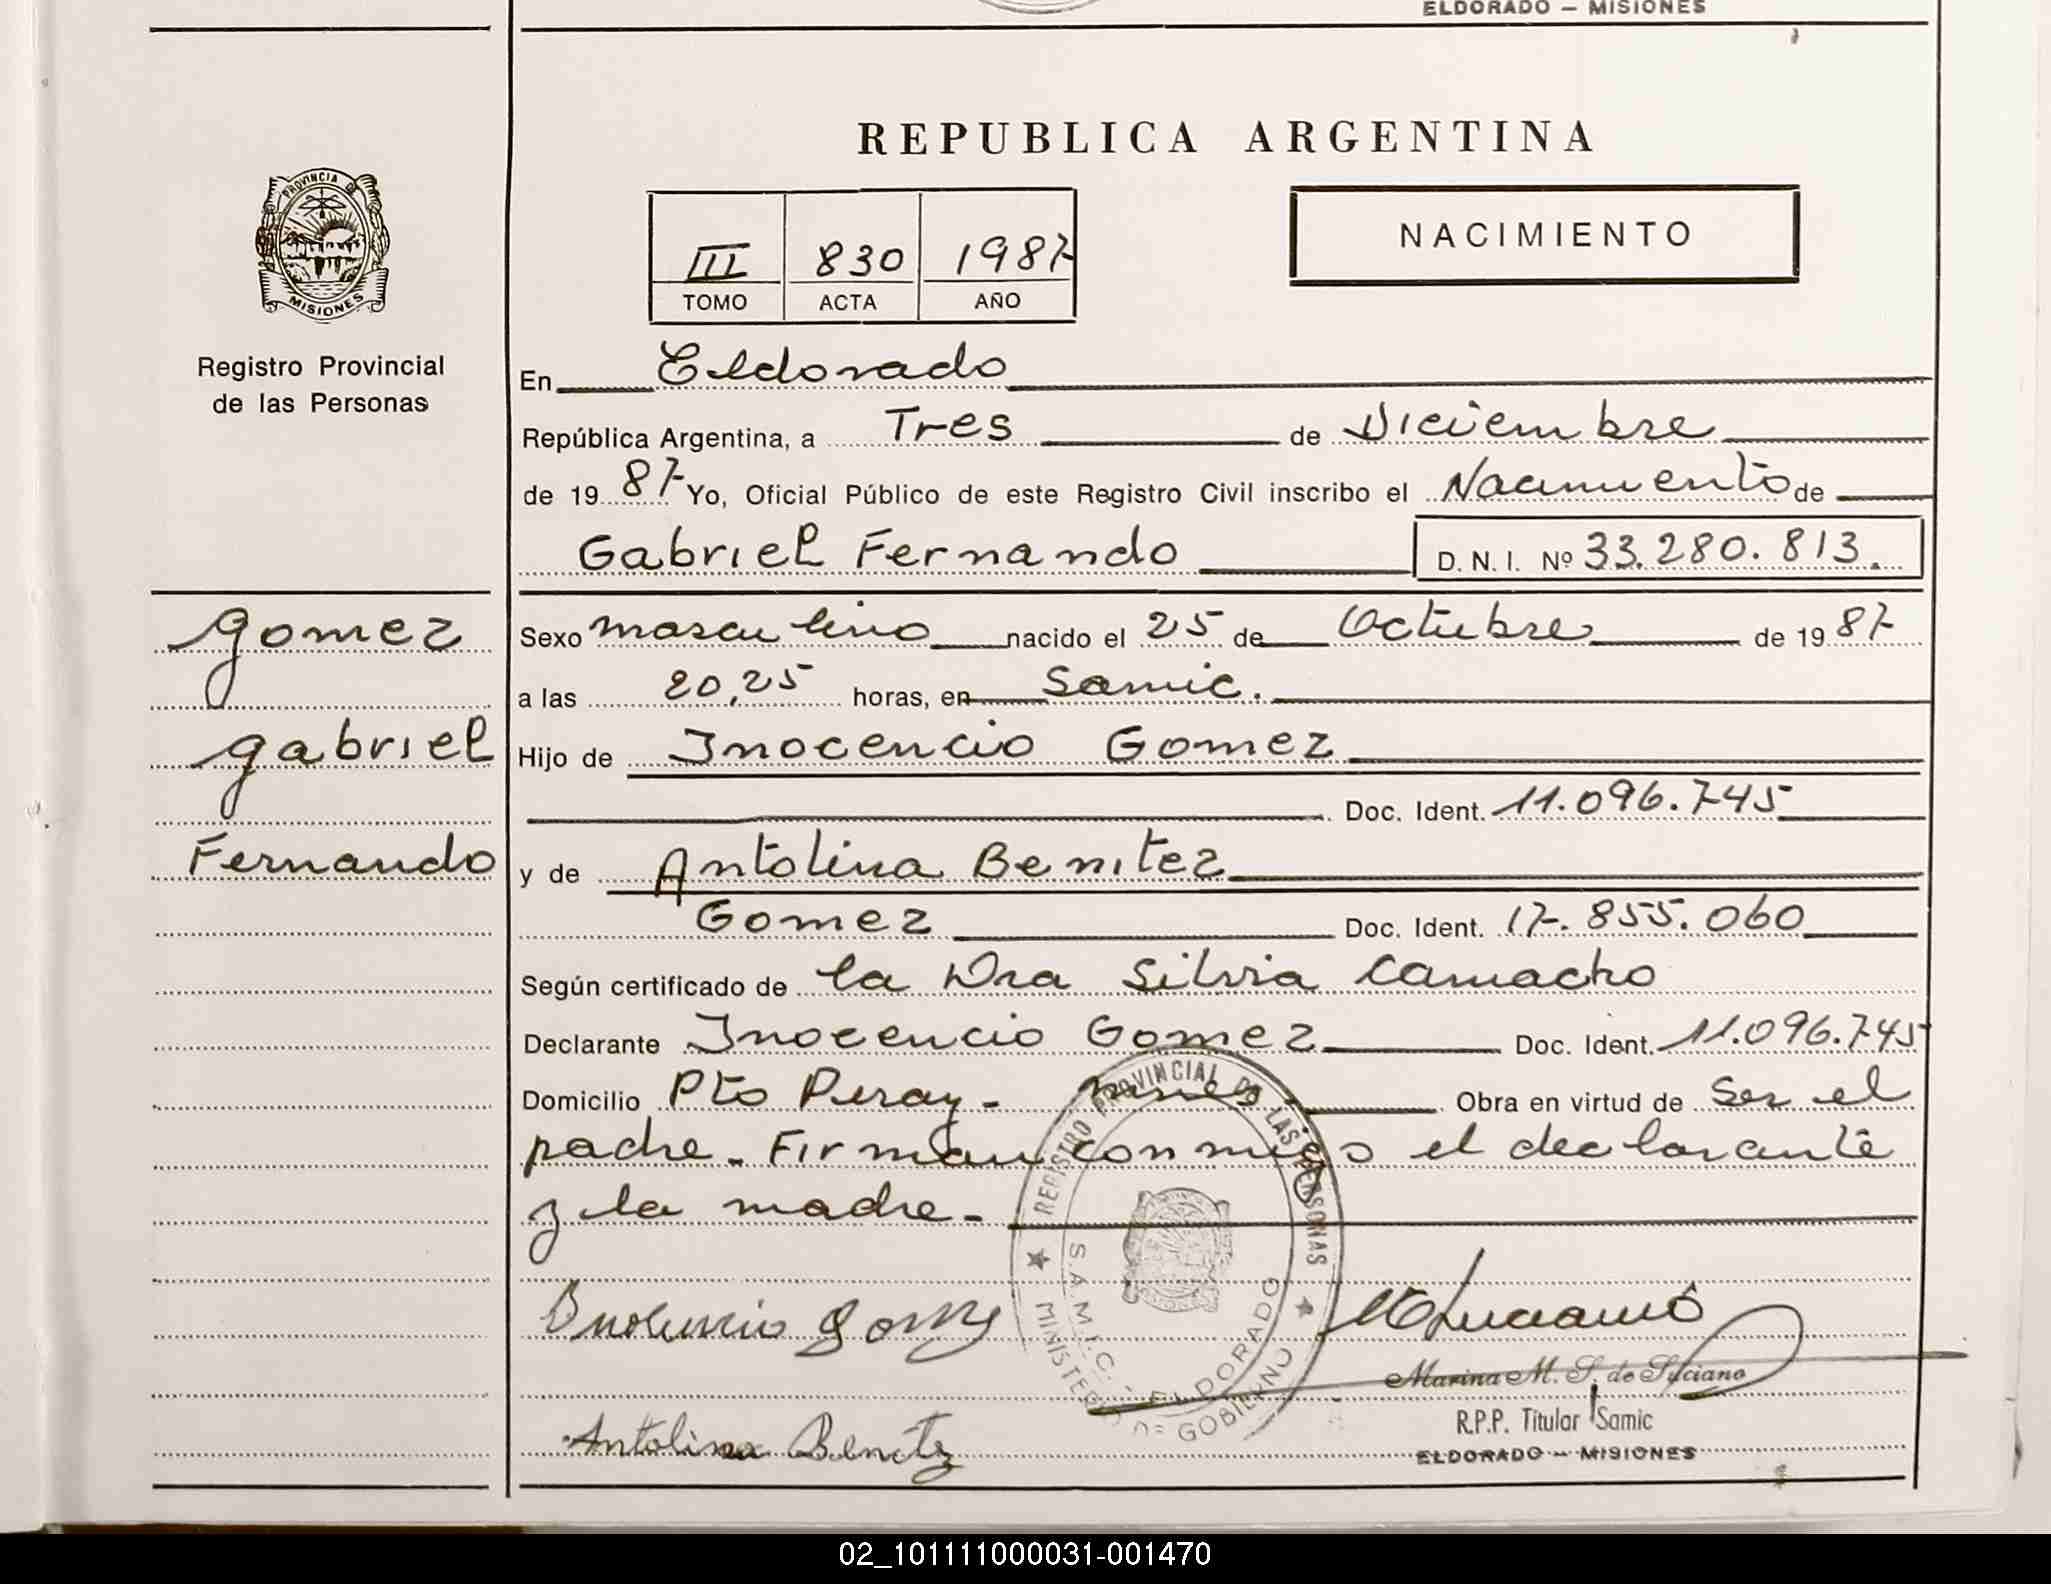 ELDORADO — MISIONES
REPUBLICA ARGENTINA
PROVINCIA DE
MISIONES
Registro Provincial
de las Personas
III 830 1987
TOMO ACTA AÑO
NACIMIENTO
En Eldorado
República Argentina, a Tres de Diciembre
de 19 87 Yo, Oficial Público de este Registro Civil inscribo el Nacimiento de
Gabriel Fernando D. N. I. Nº 33.280.813.
Gomez
Gabriel
Fernando
Sexo masculino nacido el 25 de Octubre de 19 87
a las 20,25 horas, en Samic.
Hijo de Inocencio Gomez
Doc. Ident. 11.096.745
y de Antolina Benitez
Gomez Doc. Ident. 17.855.060
Según certificado de la Dra Silvia Camacho
Declarante Inocencio Gomez Doc. Ident. 11.096.745
Domicilio Pto Piray - Mnes. Obra en virtud de ser el
padre. Firman conmigo el declarante
y la madre -
REGISTRO PROVINCIAL DE LAS PERSONAS
S.A.M.I.C. - ELDORADO
MINISTERIO DE GOBIERNO
Inocencio Gomez
Marina M. S. de Luciano
R.P.P. Titular Samic
ELDORADO — MISIONES
Antolina Benitez
02_101111000031-001470